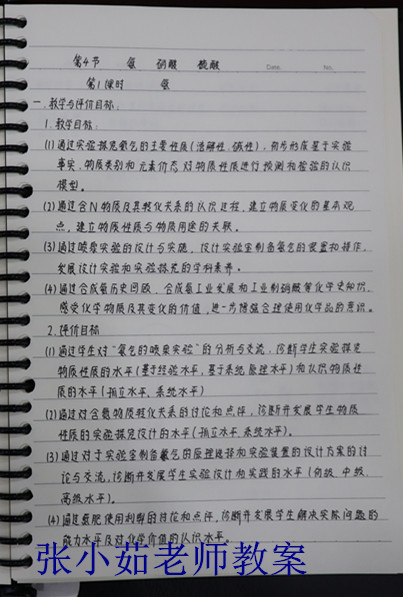 第4节 氨 硝酸 硫酸 Date. No.
第1课时 氨
一、教学与评价目标:
1. 教学目标:
(1) 通过实验探究氨气的主要性质(溶解性、碱性),初步形成基于实验
事实、物质类别和元素价态对物质性质进行预测和检验的认识
模型。
(2) 通过含N物质及其转化关系的认识过程,建立物质变化的基本观
点,建立物质性质与物质用途的关联。
(3) 通过喷泉实验的设计与实施,设计实验室制备氨气的装置和操作,
发展设计实验和实验探究的学科素养。
(4) 通过合成氨历史回顾,合成氨工业发展和工业制硝酸等化学史知识,
感受化学物质及其变化的价值,进一步增强合理使用化学品的意识。
2. 评价目标
(1) 通过学生对“氨气的喷泉实验”的分析与交流,诊断学生实验探究
物质性质的水平(基于经验水平、基于系统原理水平)和认识物质性
质的水平(孤立水平、系统水平)
(2) 通过对含氮物质转化关系的讨论和点评,诊断并发展学生物质
性质的实验探究设计的水平(孤立水平、系统水平)。
(3) 通过对于实验室制备氨气的原理选择和实验装置的设计方案的讨
论与交流,诊断并发展学生实验设计和实践的水平(初级、中级、
高级水平)。
(4) 通过氮肥使用利弊的讨论和点评,诊断并发展学生解决实际问题的
能力水平及对化学价值的认识水平。
张小茹老师教案